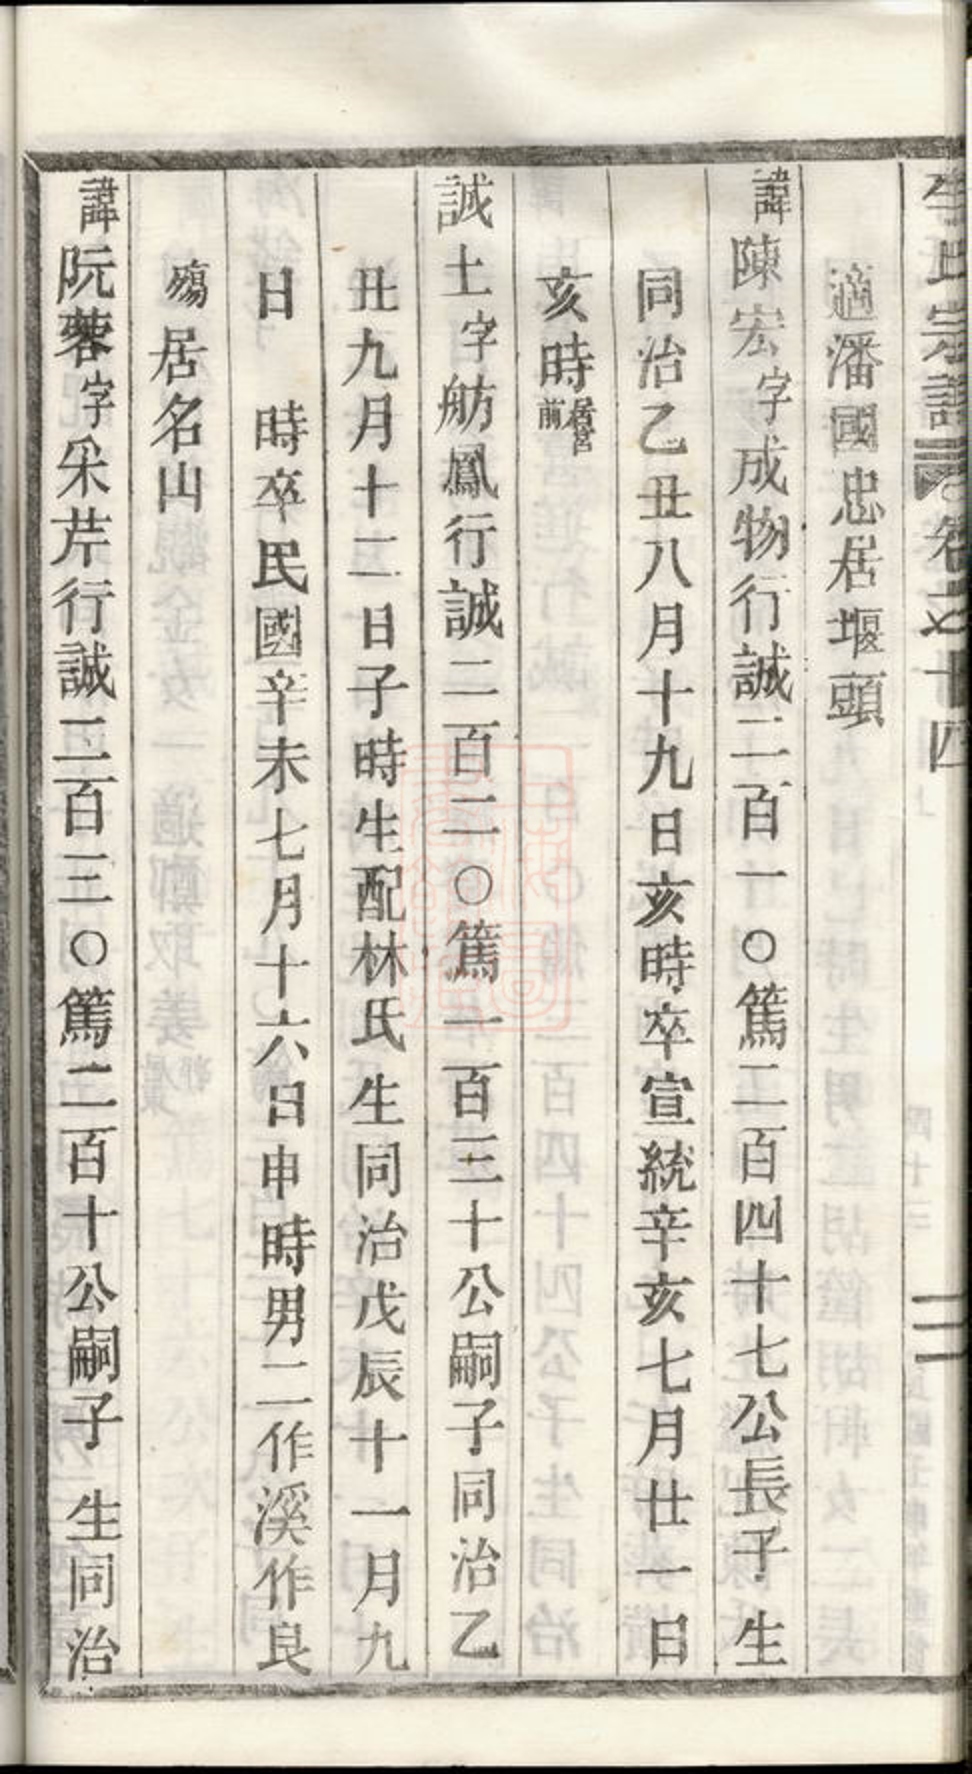 李氏宗譜 卷之十四 二
適潘國忠居堰頭
諱陳宏字成物行誠二百一〇篤二百四十七公長子 生
同治乙丑八月十九日亥時卒宣統辛亥七月廿一日
亥時居宮前
誠士字舫鳳行誠二百二〇篤一百三十公嗣子同治乙
丑九月十二日子時生配林氏生同治戊辰十一月九
日 時卒民國辛未七月十六日申時男二作溪作良
殤居名山
諱阮蓉字采芹行誠二百三〇篤二百十公嗣子 生同治